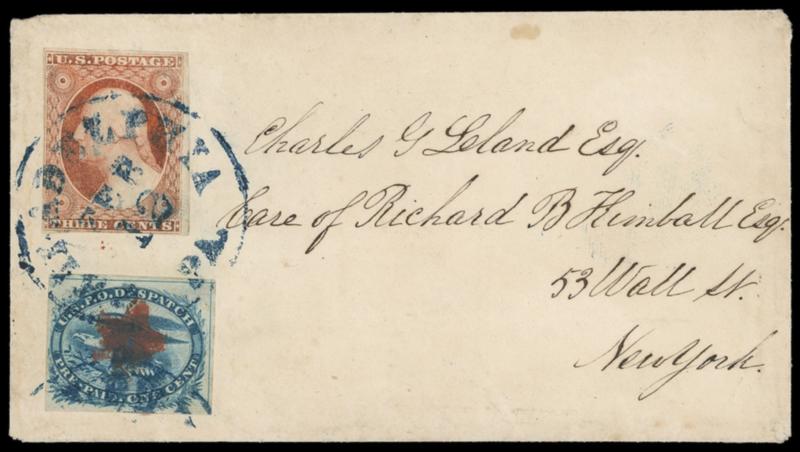 U.S. POSTAGE
THREE CENTS
FEB
U.S.P.O. DESPATCH
PRE-PAID. ONE CENT.
Charles G Leland Esq.
Care of Richard B Kimball Esq.
53 Wall St.
New York.